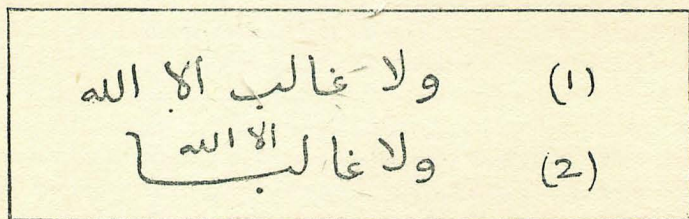 (1) ولا غالب الا الله
(2) ولا غالب الا الله